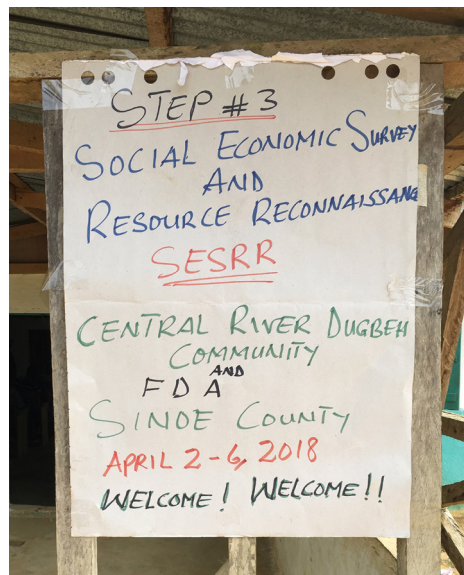 STEP #3
SOCIAL ECONOMIC SURVEY
AND
RESOURCE RECONNAISSANC
SESRR
CENTRAL RIVER DUGBEH
COMMUNITY
AND
FDA
SINOE COUNTY
APRIL 2-6, 2018
WELCOME! WELCOME!!